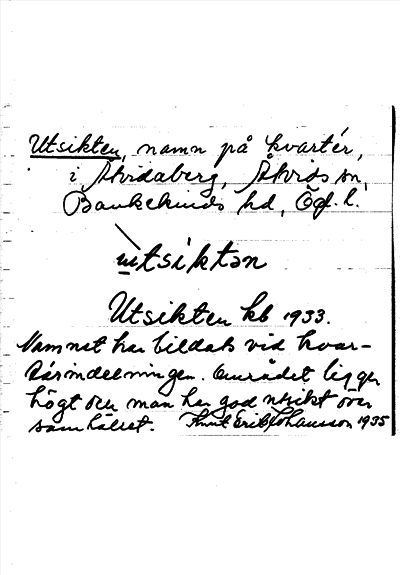 Utsikten, namn på kvartér,
i Åtvidaberg, Åtvids sn,
Bankekinds hd, Ög. l.
ùtsiktən
Utsikten kb 1933.
Namnet har bildats vid kvar-
tärindelningen. Området ligger
högt och man har god utsikt över
samhället. Knut Erik Johansson 1935